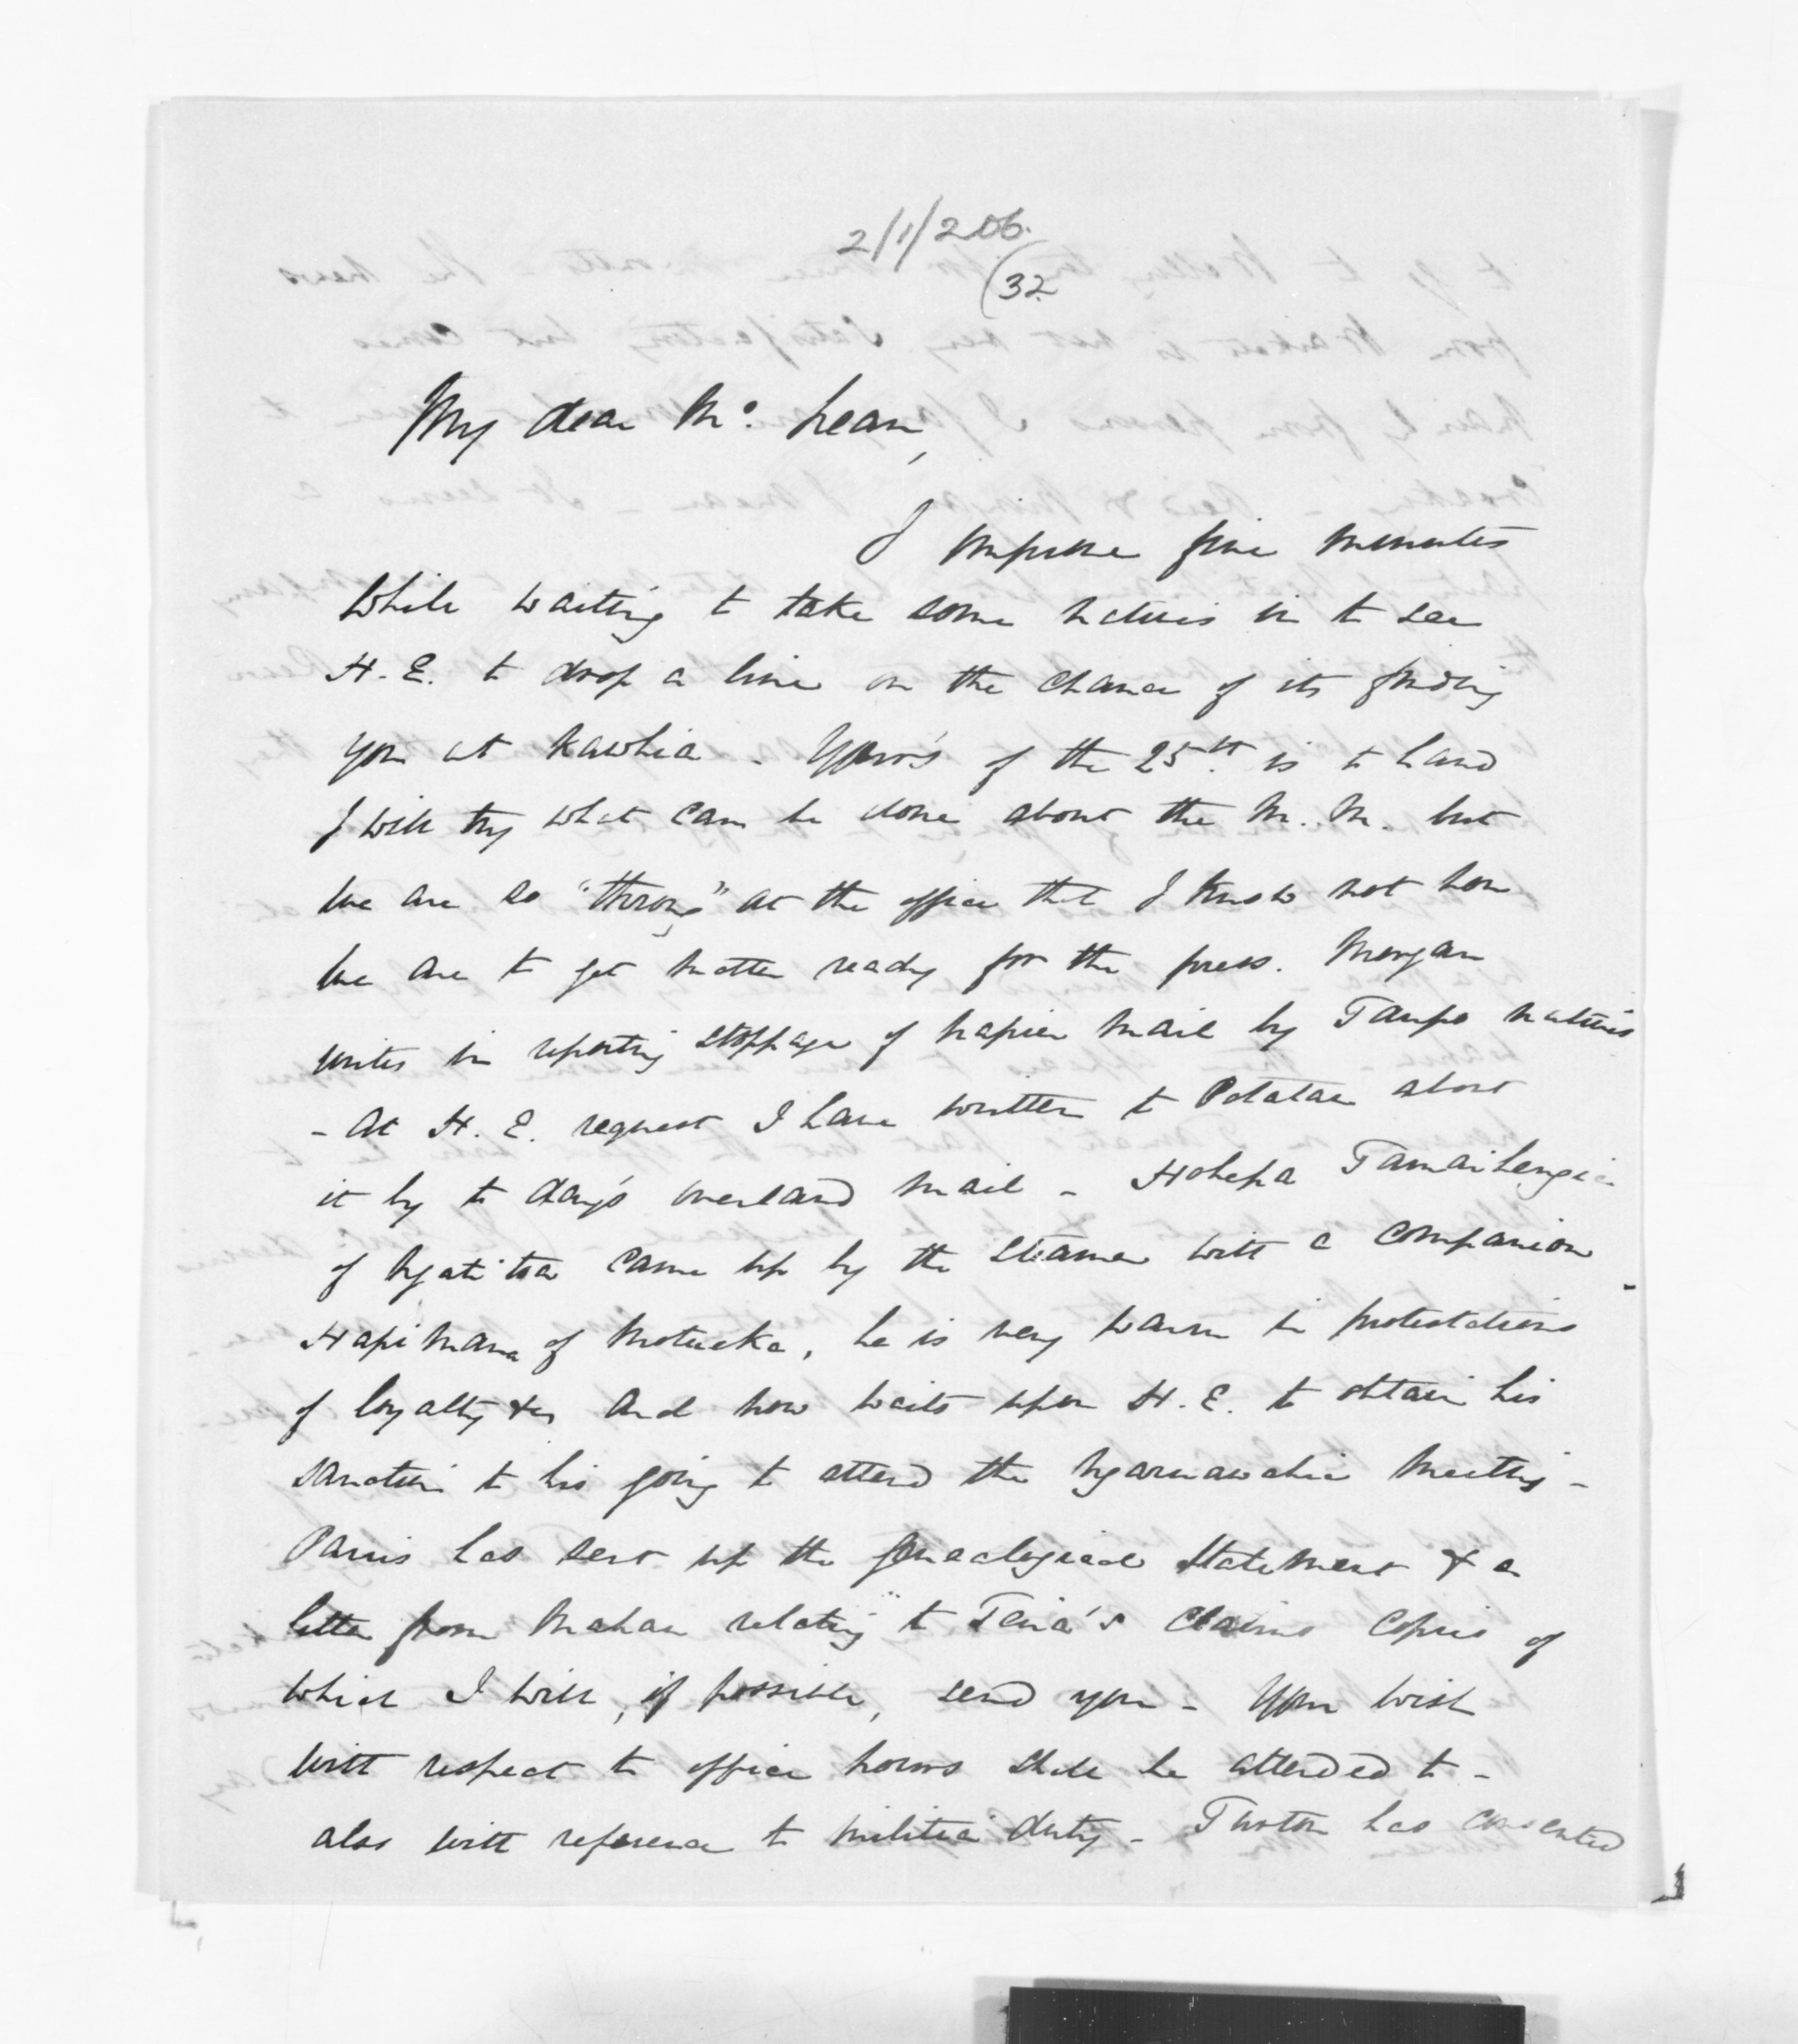 2/1/206.
(32
My dear Mc. Lean,
I improve five minutes
while waiting to take some natives in to see
H. E. to drop a line on the chance of its finding
you at Kawhia - Your's of the 25th. is to hand
I will try what can be done about the M. M. but
we are so "throng" at the office that I know not how
we are to get matter ready for the press. Morgan
writes in reporting stoppage of Napier mail by Taupo natives
- At H. E. request I have written to Potatau about
it by to day's overland mail - Hohepa Tamaihengia
of Ngatitoa came up by the steamer with a companion -
Hapimana of Motueka, he is very warm in protestations
of loyalty &c and now waits upon H. E. to obtain his
sanction to his going to attend the Ngaruawahia meeting -
Parris has sent up the genealogical statement & a
letter from Mahau relating to Teira's claims copies of
which I will, if possible, send you - Your wish
with respect to office hours shall be attended to -
also with reference to militia duty - Turton has consented